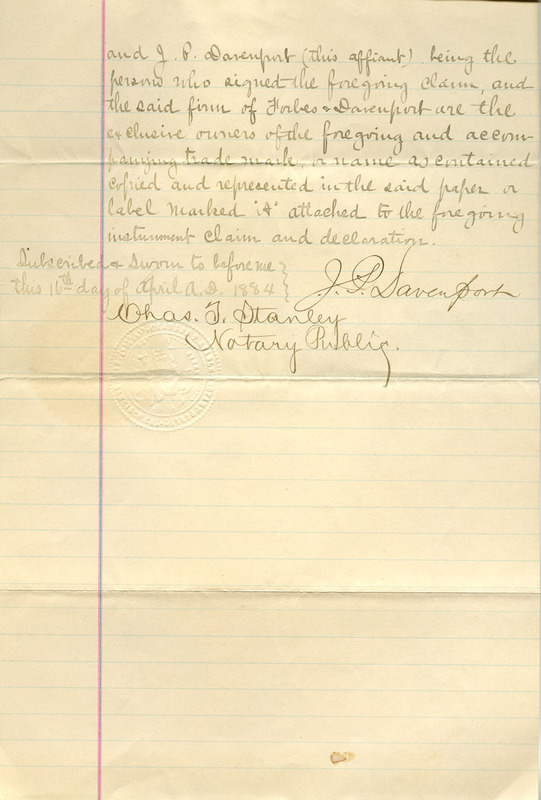 and J. P. Davenport (this affiant) being the
persons who signed the foregoing claim, and
the said firm of Forbes & Davenport are the
exclusive owners of the foregoing and accom-
panying trade mark, or name as contained
copied and represented in the said paper or
label marked "A" attached to the foregoing
instrument claim and declaration.
Subscribed & Sworn to before me
this 16th day of April A.D. 1884
J. P. Davenport
Chas. T. Stanley
Notary Public.